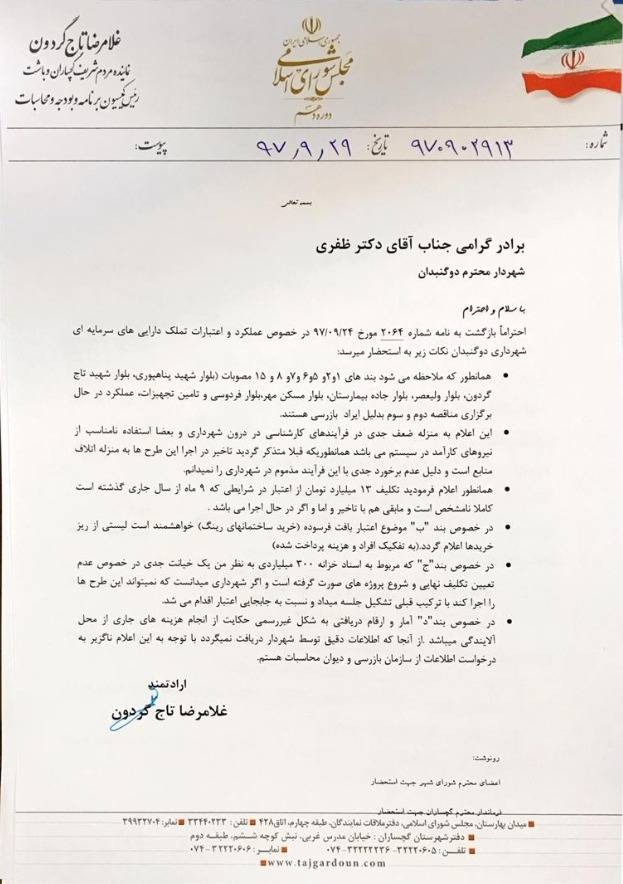 غلامرضا تاج گردون
نماینده مردم شریف گچساران و باشت
رئیس کمیسیون برنامه و بودجه و محاسبات
جمهوری اسلامی ایران
مجلس شورای اسلامی
دوره دهم
شماره: ۹۷۰۹۰۲۹۱۳ تاریخ: ۹۷/۹/۲۹ پیوست:
بسمه تعالی
برادر گرامی جناب آقای دکتر ظفری
شهردار محترم دوگنبدان
با سلام و احترام
احتراماً بازگشت به نامه شماره ۲۰۶۴ مورخ ۹۷/۰۹/۲۴ در خصوص عملکرد و اعتبارات تملک دارایی های سرمایه ای
شهرداری دوگنبدان نکات زیر به استحضار میرسد:
• همانطور که ملاحظه می شود بند های ۱و۲ و ۵و۶ و۷و ۸ و ۱۵ مصوبات (بلوار شهید پناهپوری، بلوار شهید تاج
گردون، بلوار ولیعصر، بلوار جاده بیمارستان، بلوار مسکن مهر،بلوار فردوسی و تامین تجهیزات، عملکرد در حال
برگزاری مناقصه دوم و سوم بدلیل ایراد بازرسی هستند.
• این اعلام به منزله ضعف جدی در فرآیندهای کارشناسی در درون شهرداری و بعضا استفاده نامناسب از
نیروهای کارآمد در سیستم می باشد همانطوریکه قبلا متذکر گردید تاخیر در اجرا این طرح ها به منزله اتلاف
منابع است و دلیل عدم برخورد جدی با این فرآیند مذموم در شهرداری را نمیدانم.
• همانطور اعلام فرمودید تکلیف ۱۳ میلیارد تومان از اعتبار در شرایطی که ۹ ماه از سال جاری گذشته است
کاملا نامشخص است و مابقی هم با تاخیر و اما و اگر در حال اجرا می باشد .
• در خصوص بند "ب" موضوع اعتبار بافت فرسوده (خرید ساختمانهای رینگ) خواهشمند است لیستی از ریز
خریدها اعلام گردد.(به تفکیک افراد و هزینه پرداخت شده)
• در خصوص بند"ج" که مربوط به اسناد خزانه ۳۰۰ میلیاردی به نظر من یک خیانت جدی در خصوص عدم
تعیین تکلیف نهایی و شروع پروژه های صورت گرفته است و اگر شهرداری میدانست که نمیتواند این طرح ها
را اجرا کند با ترکیب قبلی تشکیل جلسه میداد و نسبت به جابجایی اعتبار اقدام می شد.
• در خصوص بند"د" آمار و ارقام دریافتی به شکل غیررسمی حکایت از انجام هزینه های جاری از محل
آلایندگی میباشد .از آنجا که اطلاعات دقیق توسط شهردار دریافت نمیگردد با توجه به این اعلام ناگزیر به
درخواست اطلاعات از سازمان بازرسی و دیوان محاسبات هستم.
ارادتمند
غلامرضا تاج گردون
رونوشت:
اعضای محترم شورای شهر جهت استحضار
فرماندار محترم گچساران جهت استحضار
■ میدان بهارستان، مجلس شورای اسلامی، دفترملاقات نمایندگان، طبقه چهارم، اتاق۴۲۸ ■ تلفن : ۳۳۴۴۰۲۳۳ ■ نمابر: ۳۹۹۳۲۷۰۴
■ دفترشهرستان گچساران : خیابان مدرس غربی، نبش کوچه ششم، طبقه دوم
■ تلفـن : ۳۲۲۲۰۶۰۵- ۳۲۲۲۲۲۳۶-۰۷۴ ■ نمابـر : ۳۲۲۲۰۶۰۶-۰۷۴
■www.tajgardoun.com